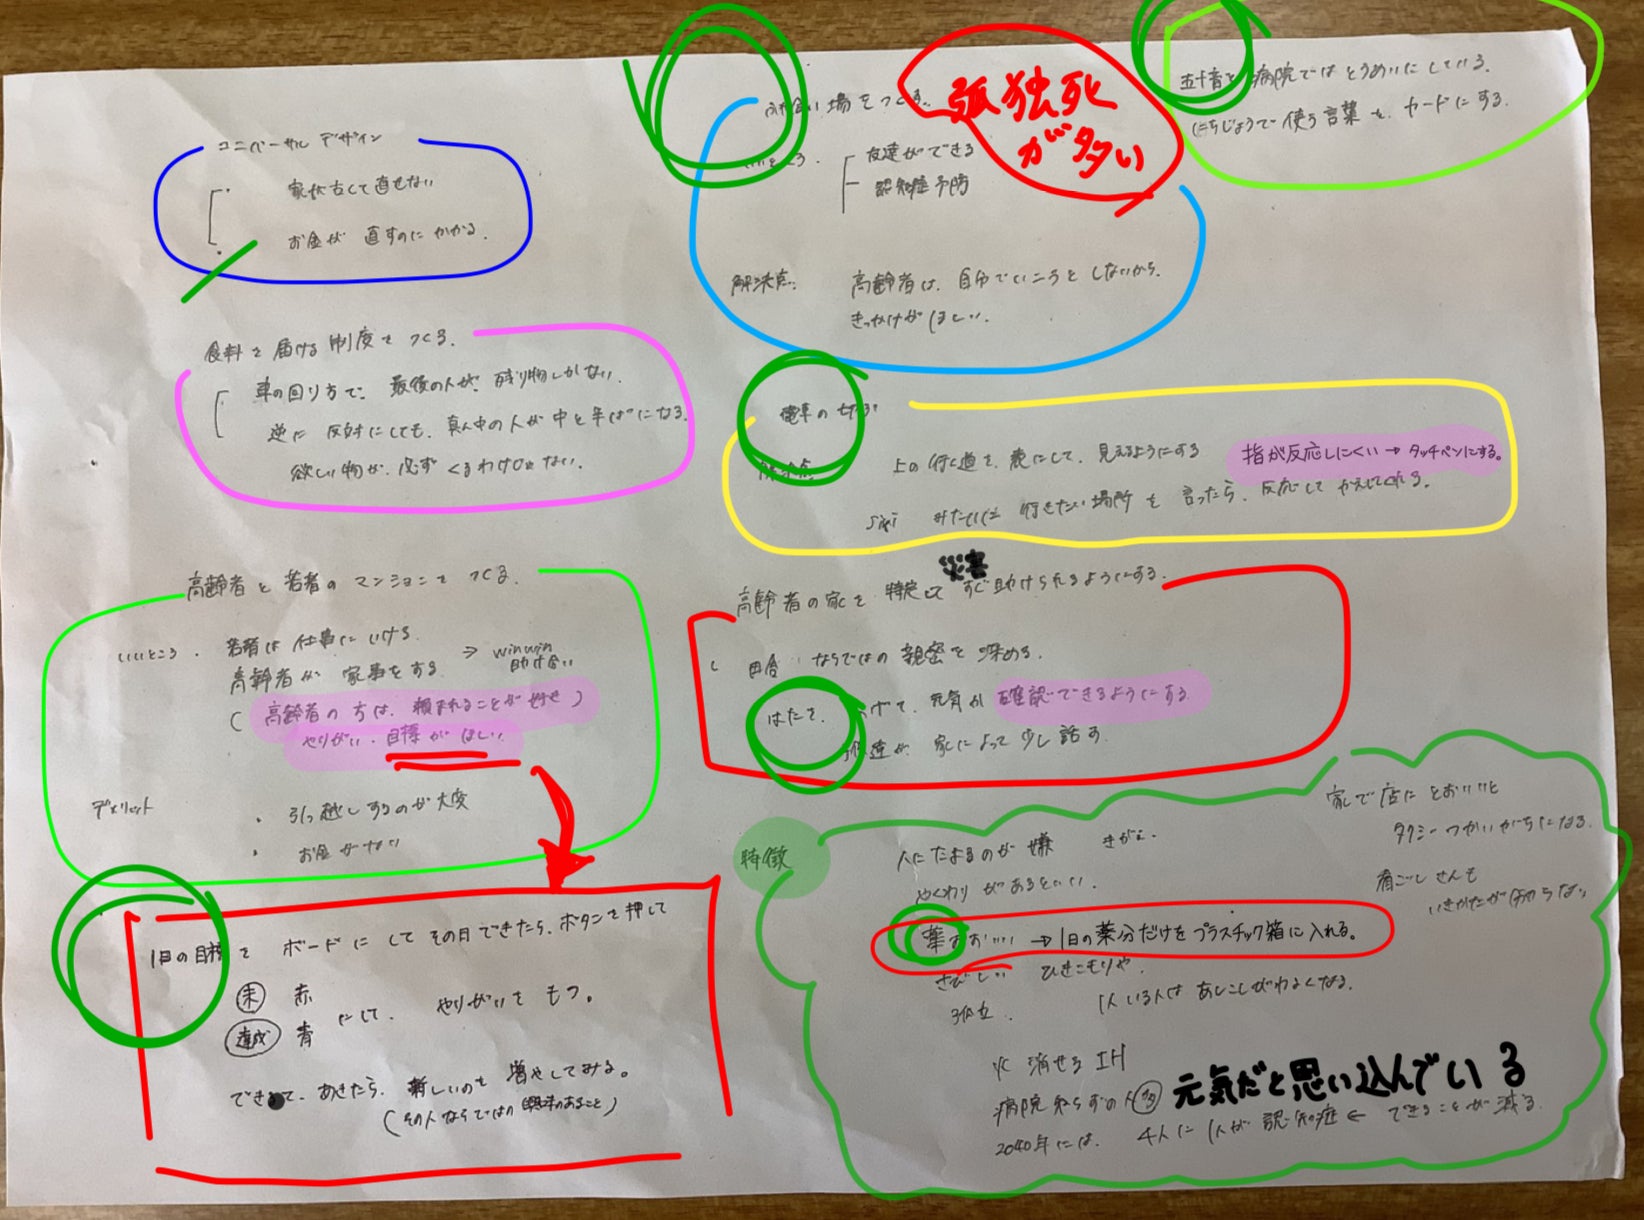 ユニバーサルデザイン
家が古くて直せない
お金が直すのにかかる。
食料を届ける制度をつくる。
車の回り方で、最後の人が、残り物しかない。
逆に反対にしても、真ん中の人が中と半ぱになる。
欲しい物が、必ずくるわけじゃない。
高齢者と若者のマンションをつくる。
いいところ・若者は仕事にいける
高齢者が家事をする ⇒ winwin 助け合い
(高齢者の方は、頼まれることが好せ)
やりがい・目標がほしい
デメリット
・引っ越しするのが大変
・お金がない
1日の目標をボードにしてその日できたら、ボタンを押して
未 赤
達成 青 にして、やりがいをもつ。
できて、あきたら、新しいのを増やしてみる。
(その人ならではの興味のあること)
場をつくる。
孤独死が多い
友達ができる
認知症予防
解決点: 高齢者は、自分でいこうとしないから、
きっかけがほしい。
五十音を病院ではとうめいにしている。
にちじょうで使う言葉を、カードにする。
電車の切ぷ
上の行く道を、表にして、見えるようにする
指が反応しにくい→タッチペンにする。
siri みたいに行きたい場所を言ったら、反応してかえしてくれる。
災害
高齢者の家を特定してすぐ助けられるようにする。
田舎ならではの親密を深める。
はたを、あげて、元気か確認できるようにする
達が、家によって少し話す
特徴
人にたよるのが嫌
やくわりがあるといい。
家で店にとおいいと
タクシーつかいがちになる。
肩ごしさんも
いきかたが分からない
薬がおおい →1日の薬分だけをプラスチック箱に入れる。
さびしい ひきこもりや、
孤立 1人いる人は あしこしがわるくなる。
火消せる IH
病院知らずの人多
元気だと思い込んでいる
2040年には、4人に1人が認知症 ← できることが減る